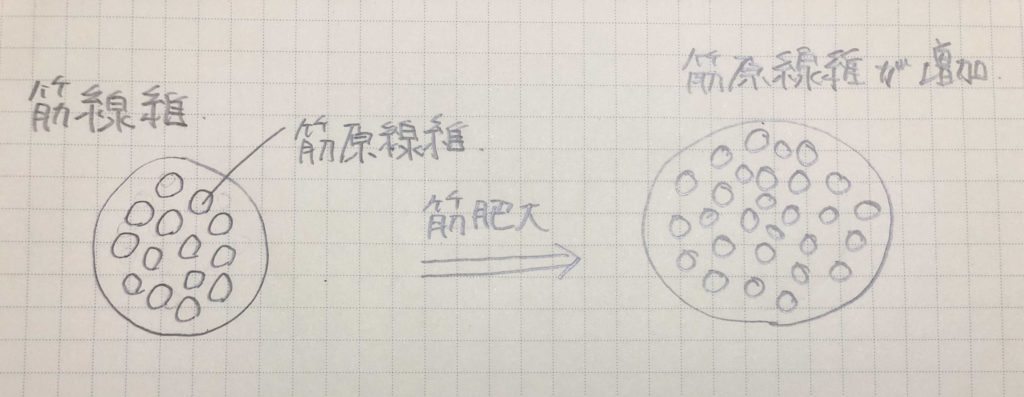 筋線維
筋原線維
筋肥大
筋原線維が増加